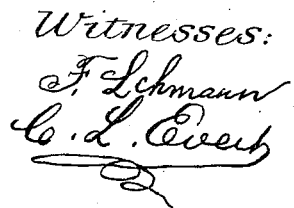 Witnesses:
F. Lehmann
C. L. Evert